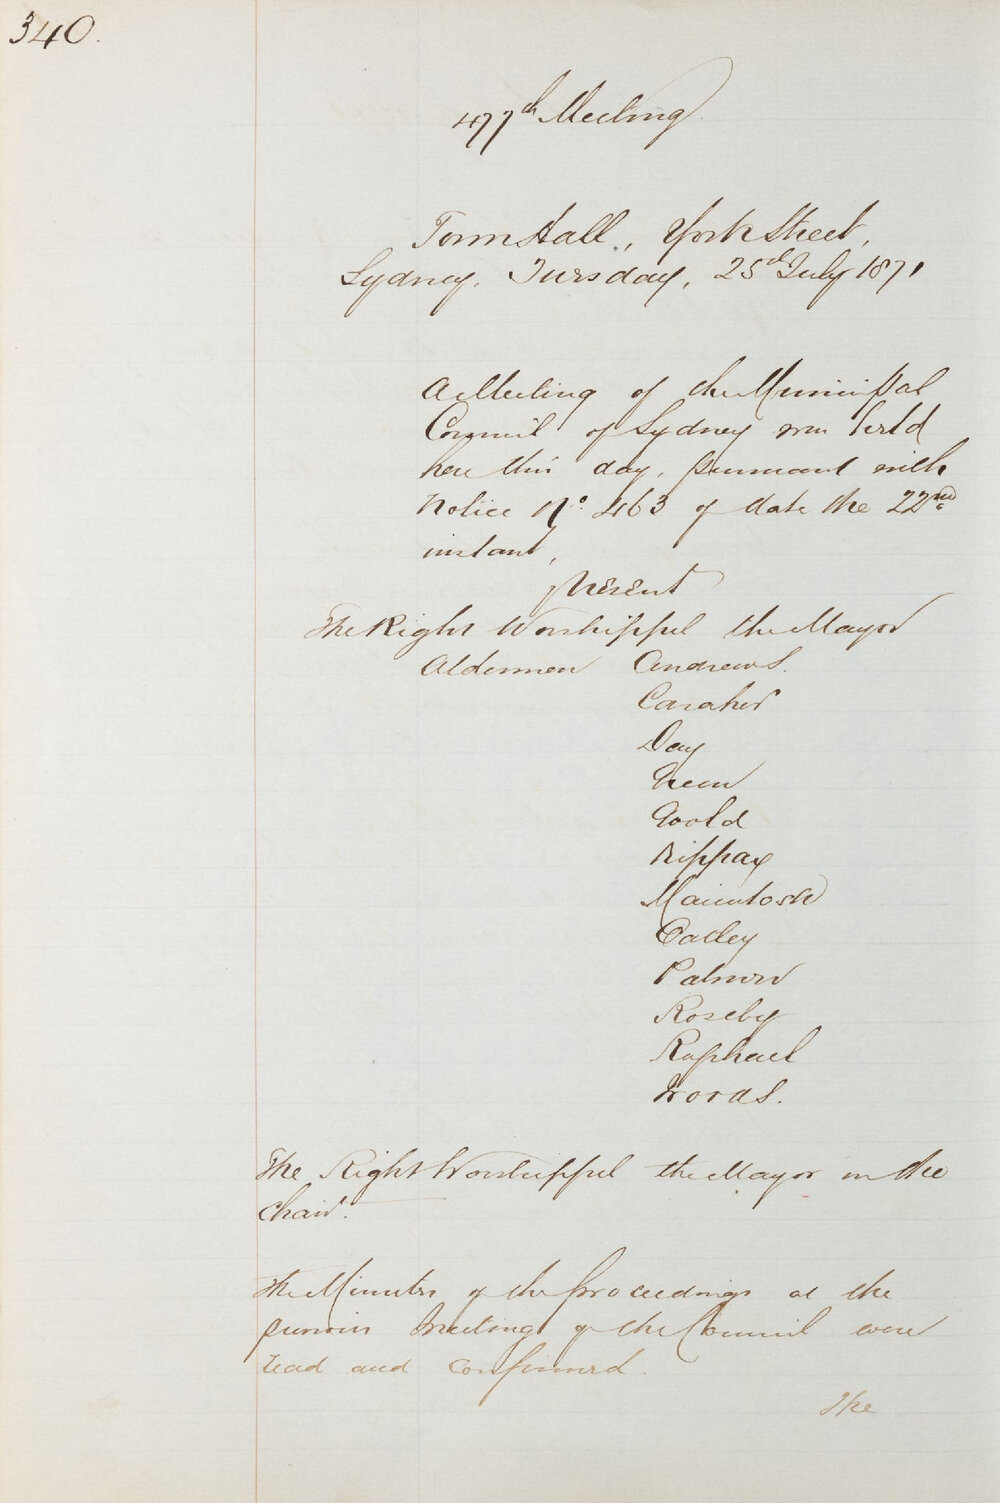 340.
477th Meeting
Town Hall, York Street,
Sydney, Tuesday, 25th July 1871
A Meeting of the Municipal
Council of Sydney was held
here this day, pursuant with
Notice No. 463 of date the 22nd
instant,
present
The Right Worshipful the Mayor
Aldermen Andrews.
Caraher
Day
Green
Goold
Kippax
Macintosh
Oatley
Palmer
Roseby
Raphael
Woods.
The Right Worshipful the Mayor in the
Chair.
The Minutes of the Proceedings at the
previous Meeting of the Council were
read and confirmed.
The